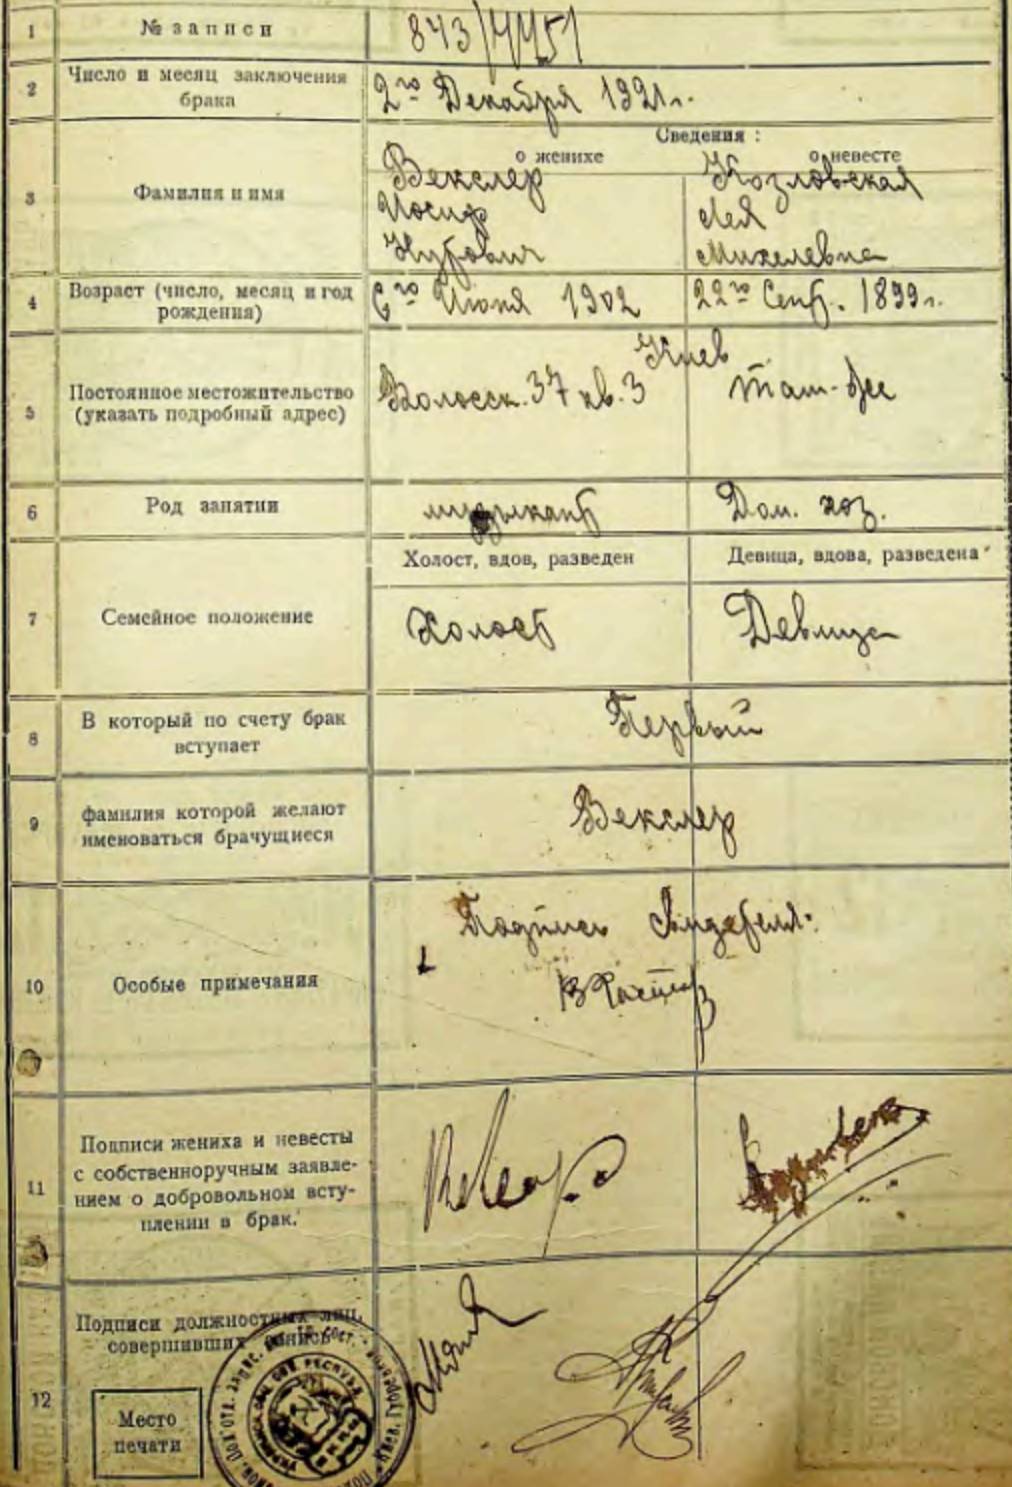 1 № записи 843/4451
2 Число и месяц заключения
брака
2го Декабря 1921 г.
Сведения :
о женихе о невесте
3 Фамилия и имя
Векслер Козловская
Иосиф Лея
Михелевна
4 Возраст (число, месяц и год
рождения)
6го Июня 1902 22го Сент. 1899 г.
5 Постоянное местожительство
(указать подробный адрес)
Киев
37 кв. 3 там-же
6 Род занятии музыкант Дом. хоз.
Холост, вдов, разведен Девица, вдова, разведена
7 Семейное положение Холост Девица
8 В который по счету брак
вступает
Первый
9 фамилия которой желают
именоваться брачущиеся
Векслер
10 Особые примечания
Подпись
11 Подписи жениха и невесты
с собственноручным заявле-
нием о добровольном всту-
плении в брак.
12 Подписи должностных лиц,
совершивших запись
Место
печати